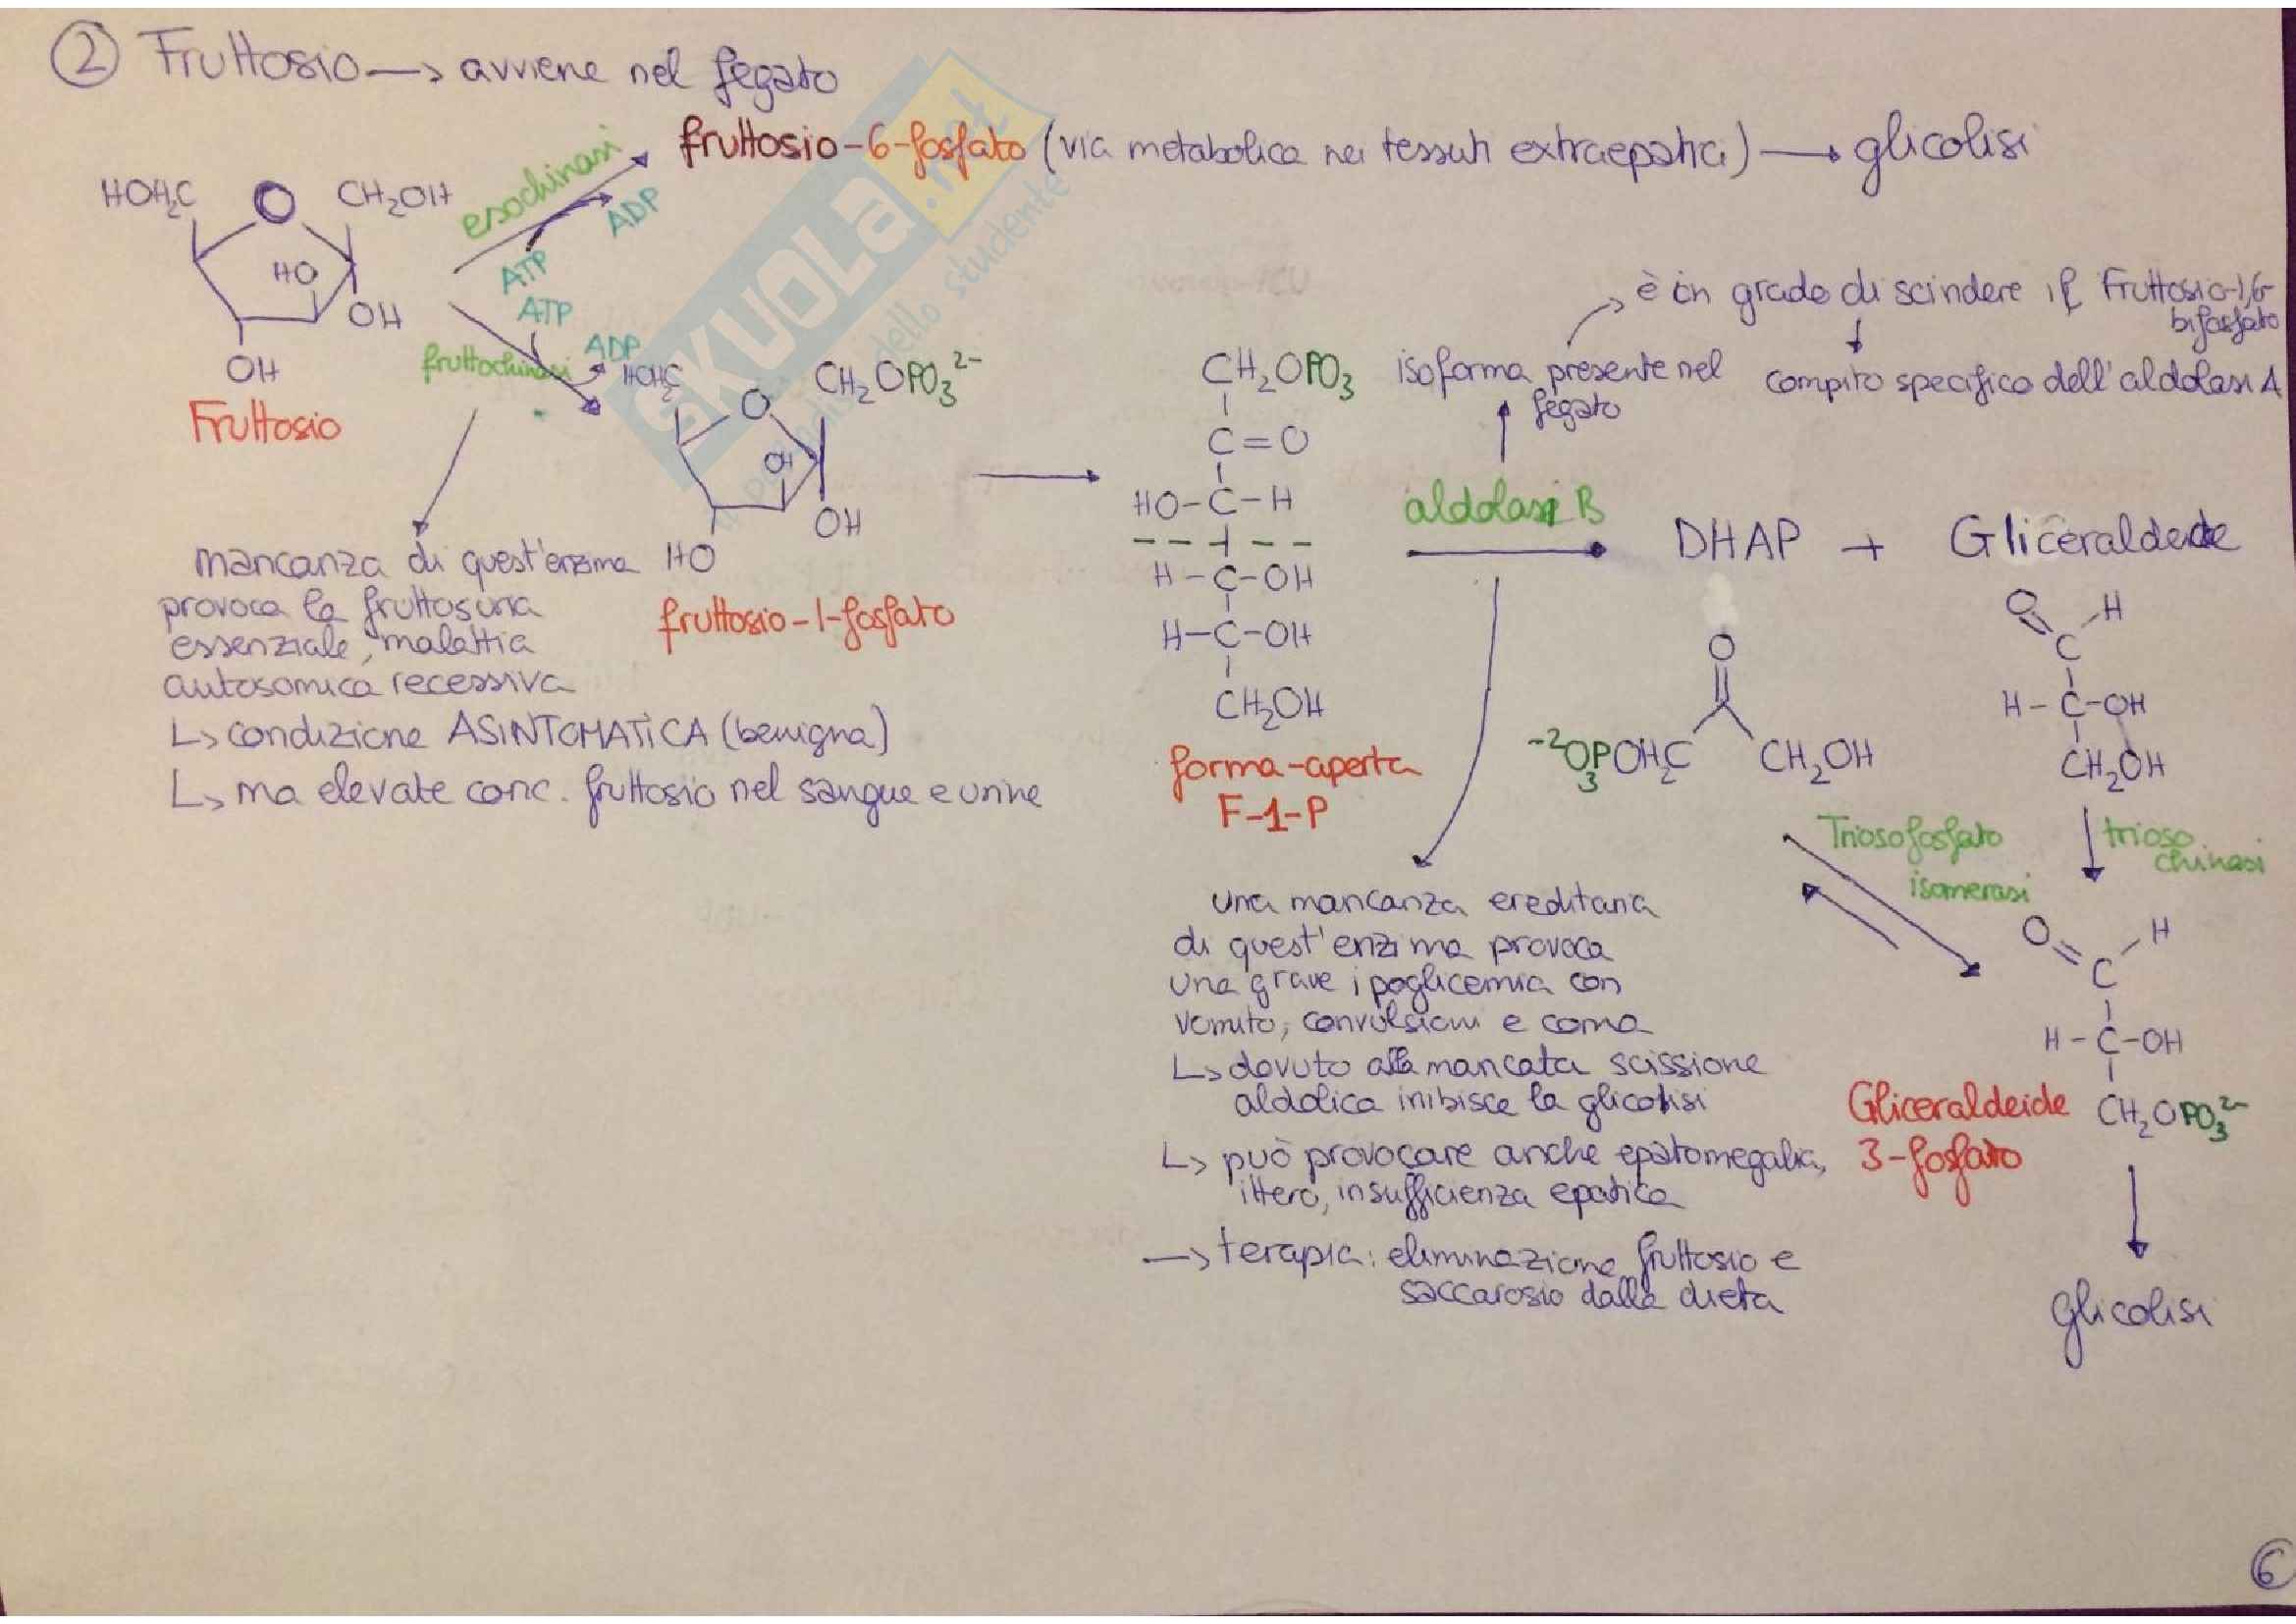 ② Fruttosio → avviene nel fegato
esochinasi
fruttosio-6-fosfato (via metabolica nei tessuti extraepatici) → glicolisi
ATP
ADP
HOH₂C O CH₂OH
HO
OH
OH
Fruttosio
ATP
ADP
fruttochinasi
HOH₂C O CH₂OPO₃²⁻
OH
OH
HO
fruttosio-1-fosfato
mancanza di quest'enzima
provoca la fruttosuria
essenziale, malattia
autosomica recessiva
↳ condizione ASINTOMATICA (benigna)
↳ ma elevate conc. fruttosio nel sangue e urine
CH₂OPO₃
C=O
HO-C-H
H-C-OH
H-C-OH
CH₂OH
forma-aperta
F-1-P
è in grado di scindere il fruttosio-1,6-
bifosfato
isoforma presente nel
fegato
compito specifico dell'aldolasi A
aldolasi B
DHAP + Gliceraldeide
O
⁻²O₃POH₂C CH₂OH
O H
C
H-C-OH
CH₂OH
Triosofosfato
isomerasi
trioso
chinasi
una mancanza ereditaria
di quest'enzima provoca
una grave ipoglicemia con
vomito, convulsioni e coma
↳ dovuto alla mancata scissione
aldolica inibisce la glicolisi
↳ può provocare anche epatomegalia,
ittero, insufficienza epatica
→ terapia: eliminazione fruttosio e
saccarosio dalla dieta
O H
C
H-C-OH
CH₂OPO₃²⁻
Gliceraldeide
3-fosfato
glicolisi
SKUOLA.net
dello studente
6